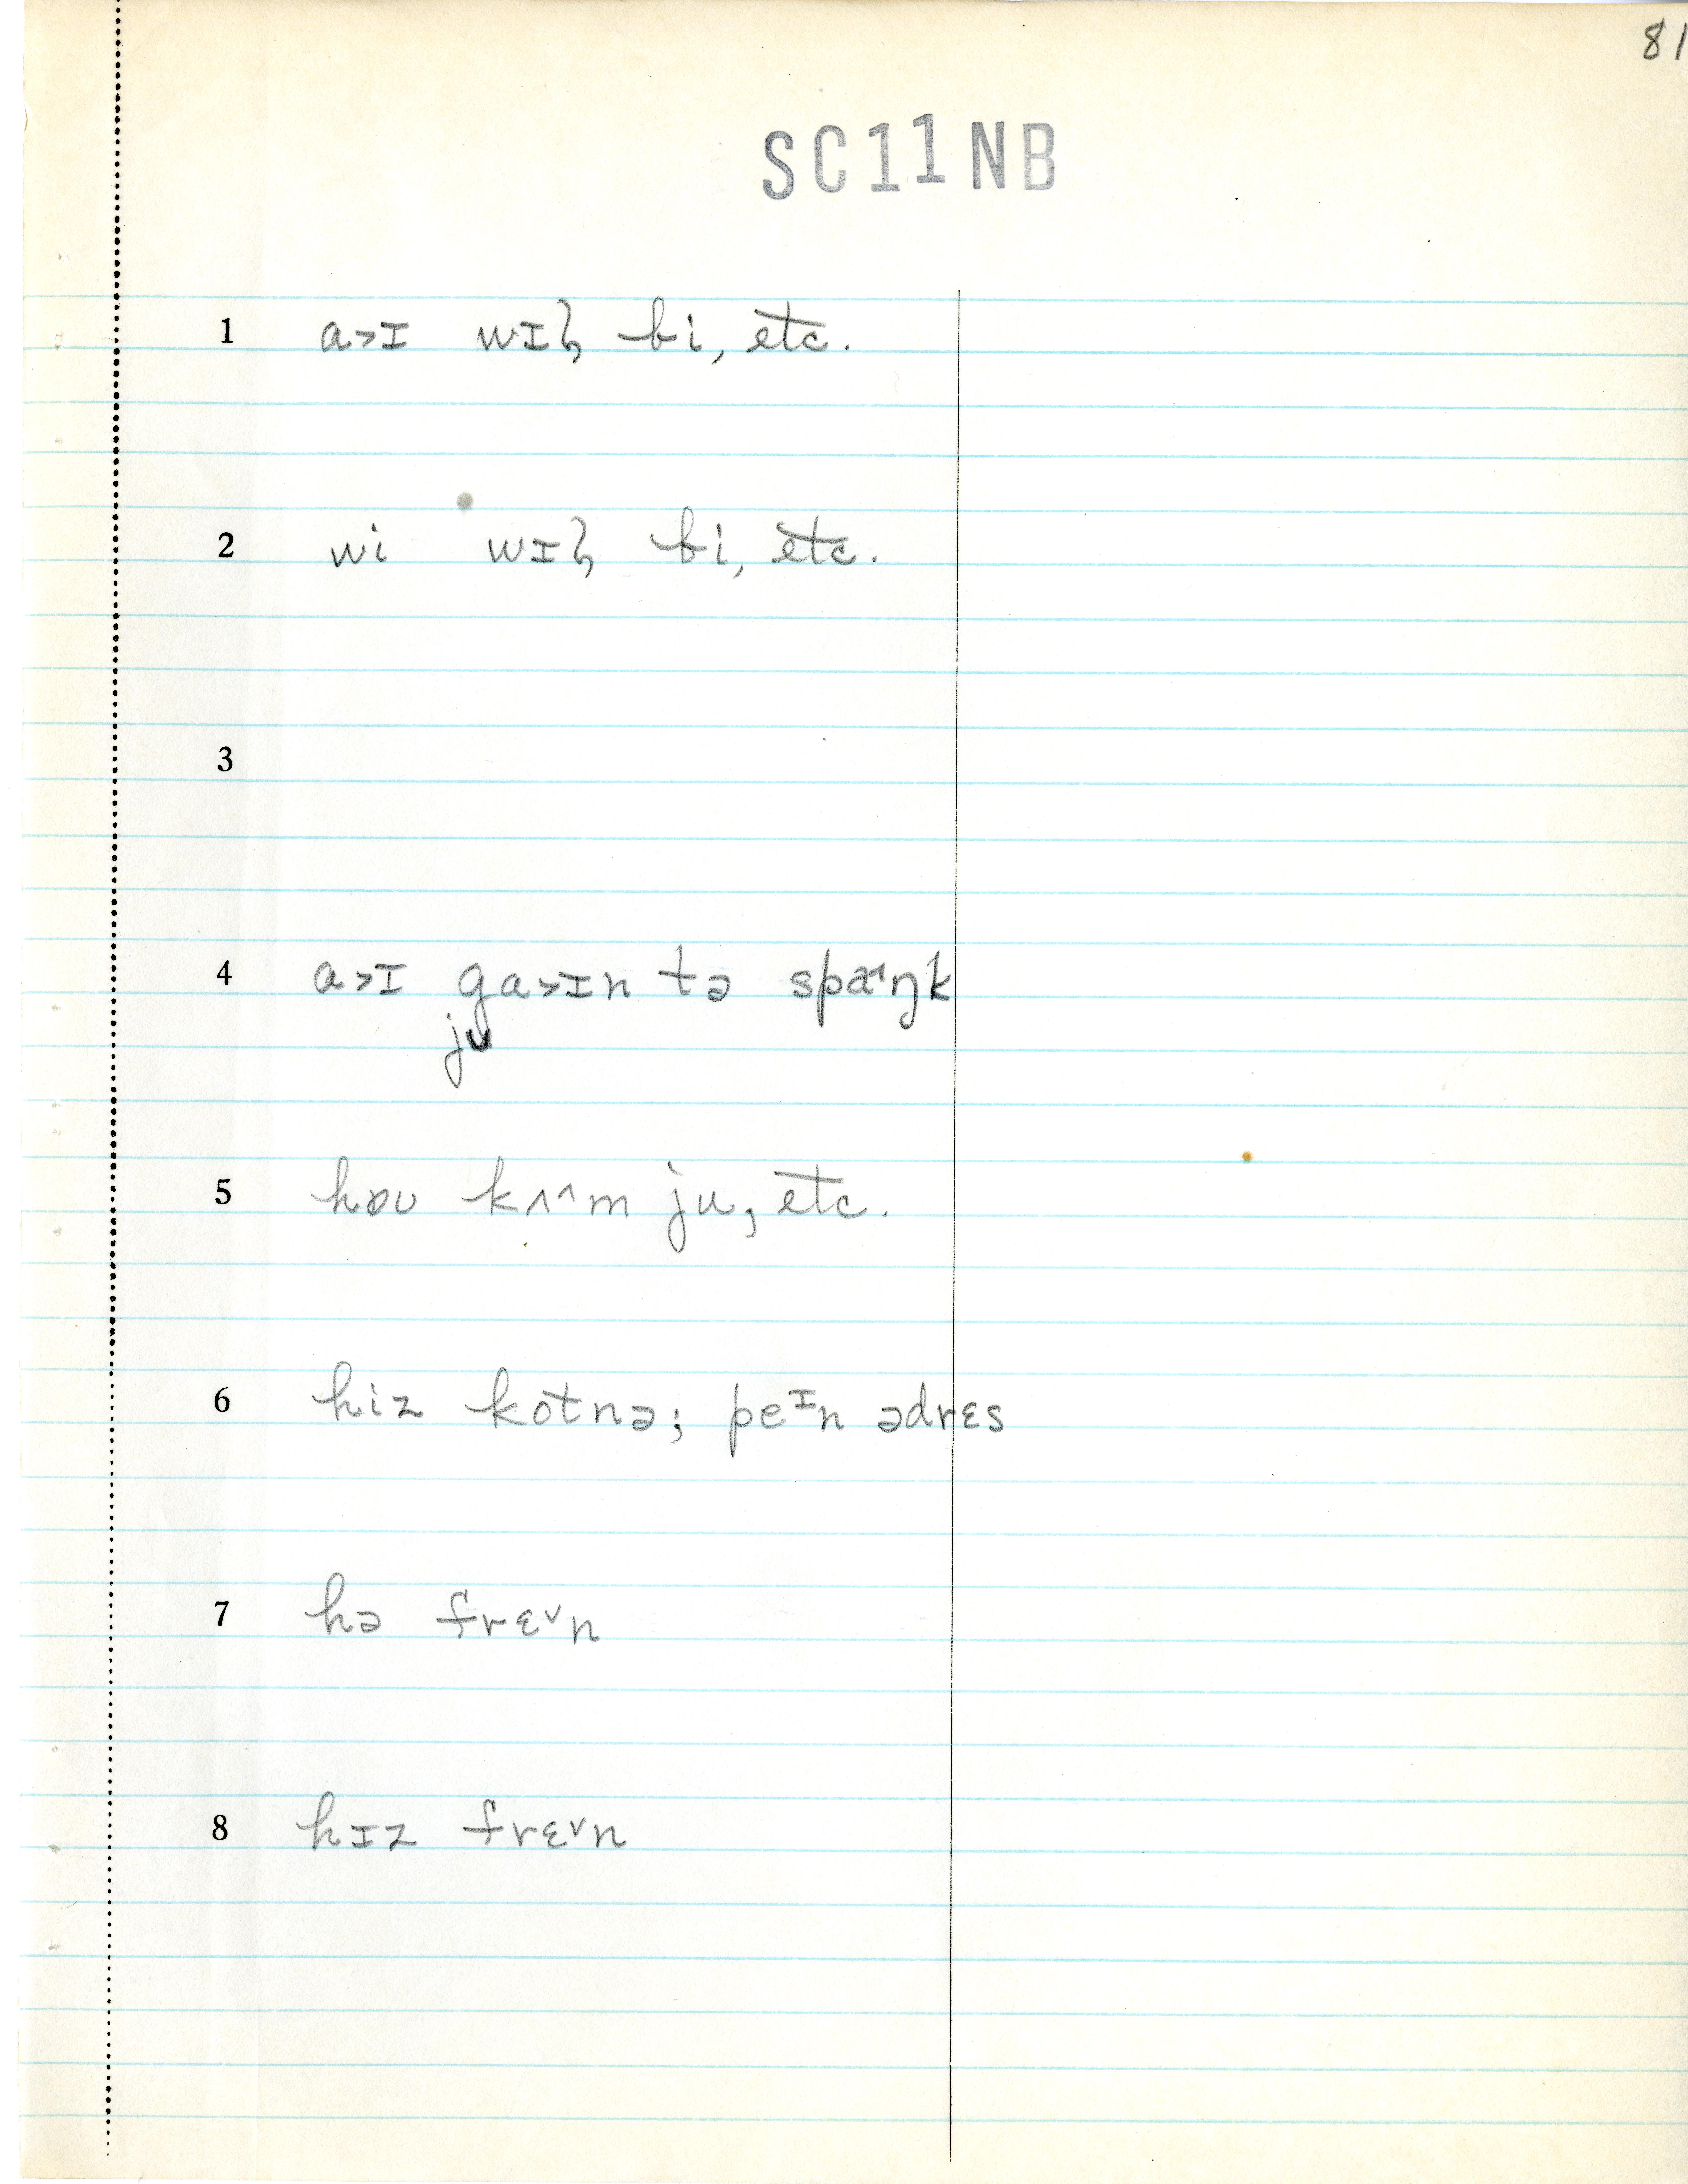 81
SC11NB
1 a˃ɪ wɪɮ bi, etc.
2 wi wɪɮ bi, etc.
3
4 a˃ɪ ga˃ɪn tə spæ˄ŋk
ju
5 hɒʊ kʌ˄m ju, etc.
6 hiz kotnə; peᴵn ədrɛs
7 hə frɛ˅n
8 hɪz frɛ˅n